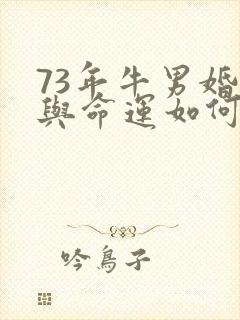 73年牛男婚
與命運如何
吟鳥子